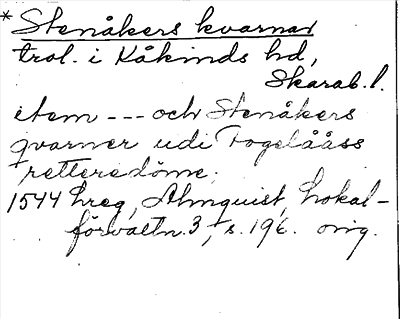 * Stenåkers kvarnar
trol. i Kåkinds hd,
Skarab. l.
item --- och Stenåkers
qvarner udi Fogelååss
retteredöme.
1544 hreg, Almquist, Lokal-
förvaltn. 3, s. 196. orig.